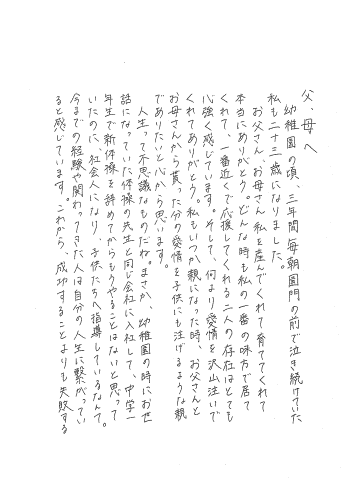 父、母へ
幼稚園の頃、三年間毎朝園門の前で泣き続けていた
私も二十三歳になりました。
お父さん、お母さん私を産んでくれて育ててくれて
本当にありがとう。どんな時も私の一番の味方で居て
くれて、一番近くで応援してくれる二人の存在はとても
心強く感じています。そして、何より愛情を沢山注いで
くれてありがとう。私もいつか親になった時、お父さんと
お母さんから貰った分の愛情を子供にも注げるような親
でありたいと心から思います。
人生って不思議なものだね。まさか、幼稚園の時にお世
話になっていた体操の先生と同じ会社に入社して、中学一
年生で新体操を辞めてからもうやることはないと思って
いたのに、社会人になり、子供たちへ指導しているなんて。
今までの経験や関わってきた人は自分の人生に繋がってい
ると感じています。これから、成功することよりも失敗する